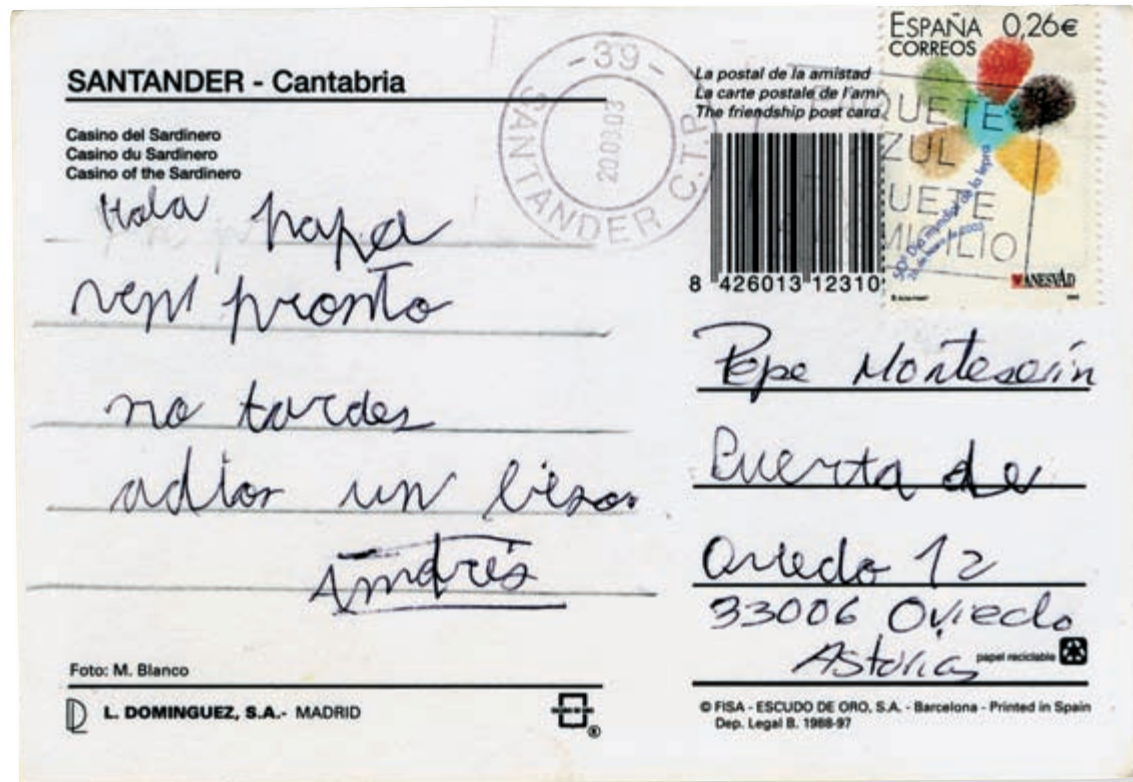 SANTANDER - Cantabria
Casino del Sardinero
Casino du Sardinero
Casino of the Sardinero
Hola papá
ven pronto
no tardes
adios un beso.
Andrés
Foto: M. Blanco
L. DOMINGUEZ, S.A.- MADRID
-39-
SANTANDER C.T.P.
20.03.03
La postal de la amistad
La carte postale de l'ami
The friendship post card
8 426013 12310
ESPAÑA 0,26€
CORREOS
50º Día mundial de la lepra
ANESVAD
Pepe Monteserín
Puerta de
Oviedo 12
33006 Oviedo
Asturias
papel reciclable
© FISA - ESCUDO DE ORO, S.A. - Barcelona - Printed in Spain
Dep. Legal B. 1988-97